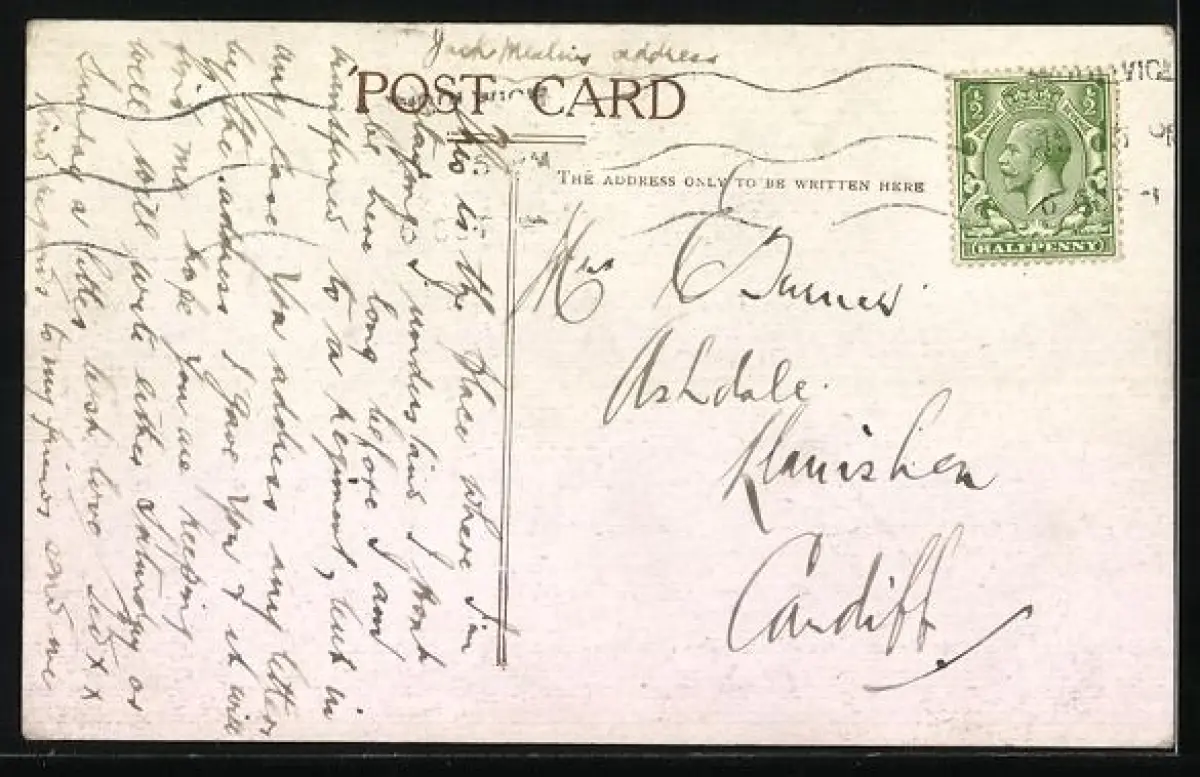 address
POST CARD
THE ADDRESS ONLY TO BE WRITTEN HERE
½ ½
HALFPENNY
Mrs
Ashdale
Llanishen
Cardiff
This is the place where I'm
staying I understand I wont
be here long before I am
transferred to a regiment, but in
any case you address any letters
by the address I gave you & it will
find me hope you are keeping
well will write either Saturday or
Sunday a letter best love Ted x x
kind regards to my friends and me